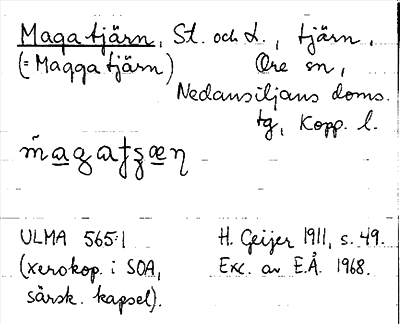 Maga tjärn, St. och L., tjärn,
(= Magga tjärn) Ore sn,
Nedansiljans doms.
tg, Kopp. l.
ULMA 565:1 H. Geijer 1911, s. 49.
(xerokop. i SOA, Exc. av E.Å. 1968.
särsk. kapsel).